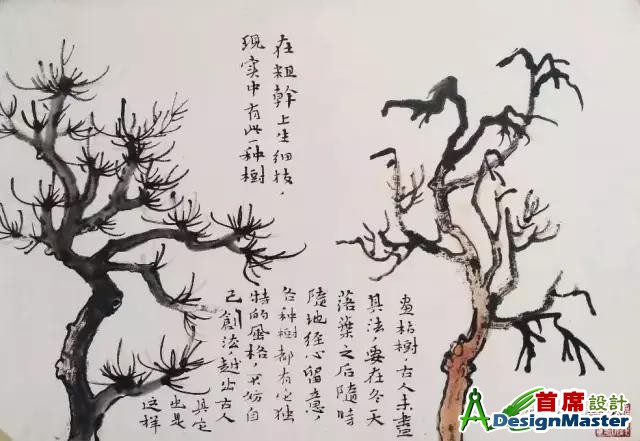 在粗幹上生细枝，
现实中有此一种樹
畫枯樹古人未盡
其法，要在冬天
落葉之后隨時
隨地经心留意，
各种樹都有它独
特的風格，不妨自
己創法，越出古人
其实
也是
這样
首席設計
ADesignMaster